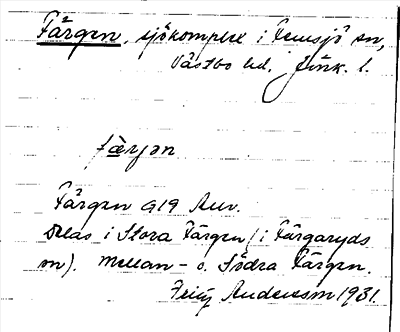 Färgen, sjökomplex i Femsjö sn,
Västbo hd, Jönk. l.
færjən
Färgen G19 Auv.
Delas i Stora Färgen (i Färgaryds
sn). Mellan- o. Södra Färgen.
Fritz Andersson 1931.